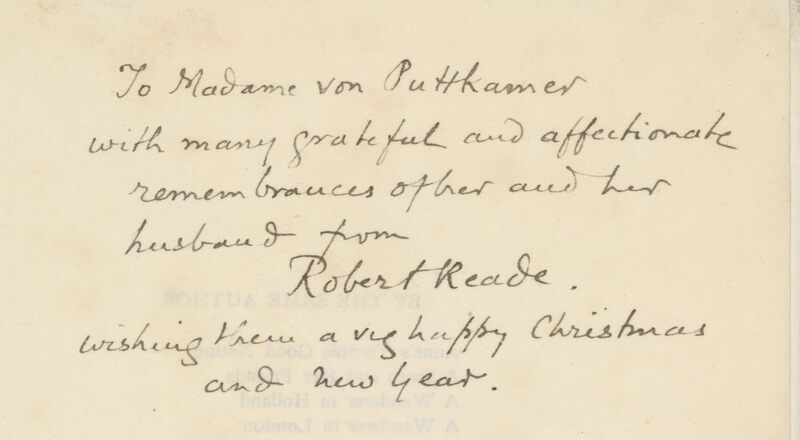 To Madame von Puttkamer
with many grateful and affectionate
remembrances of her and her
husband from
Robert Reade.
wishing them a very happy Christmas
and new year.
BY THE SAME AUTHOR
A Wanderer in Holland
A Wanderer in London